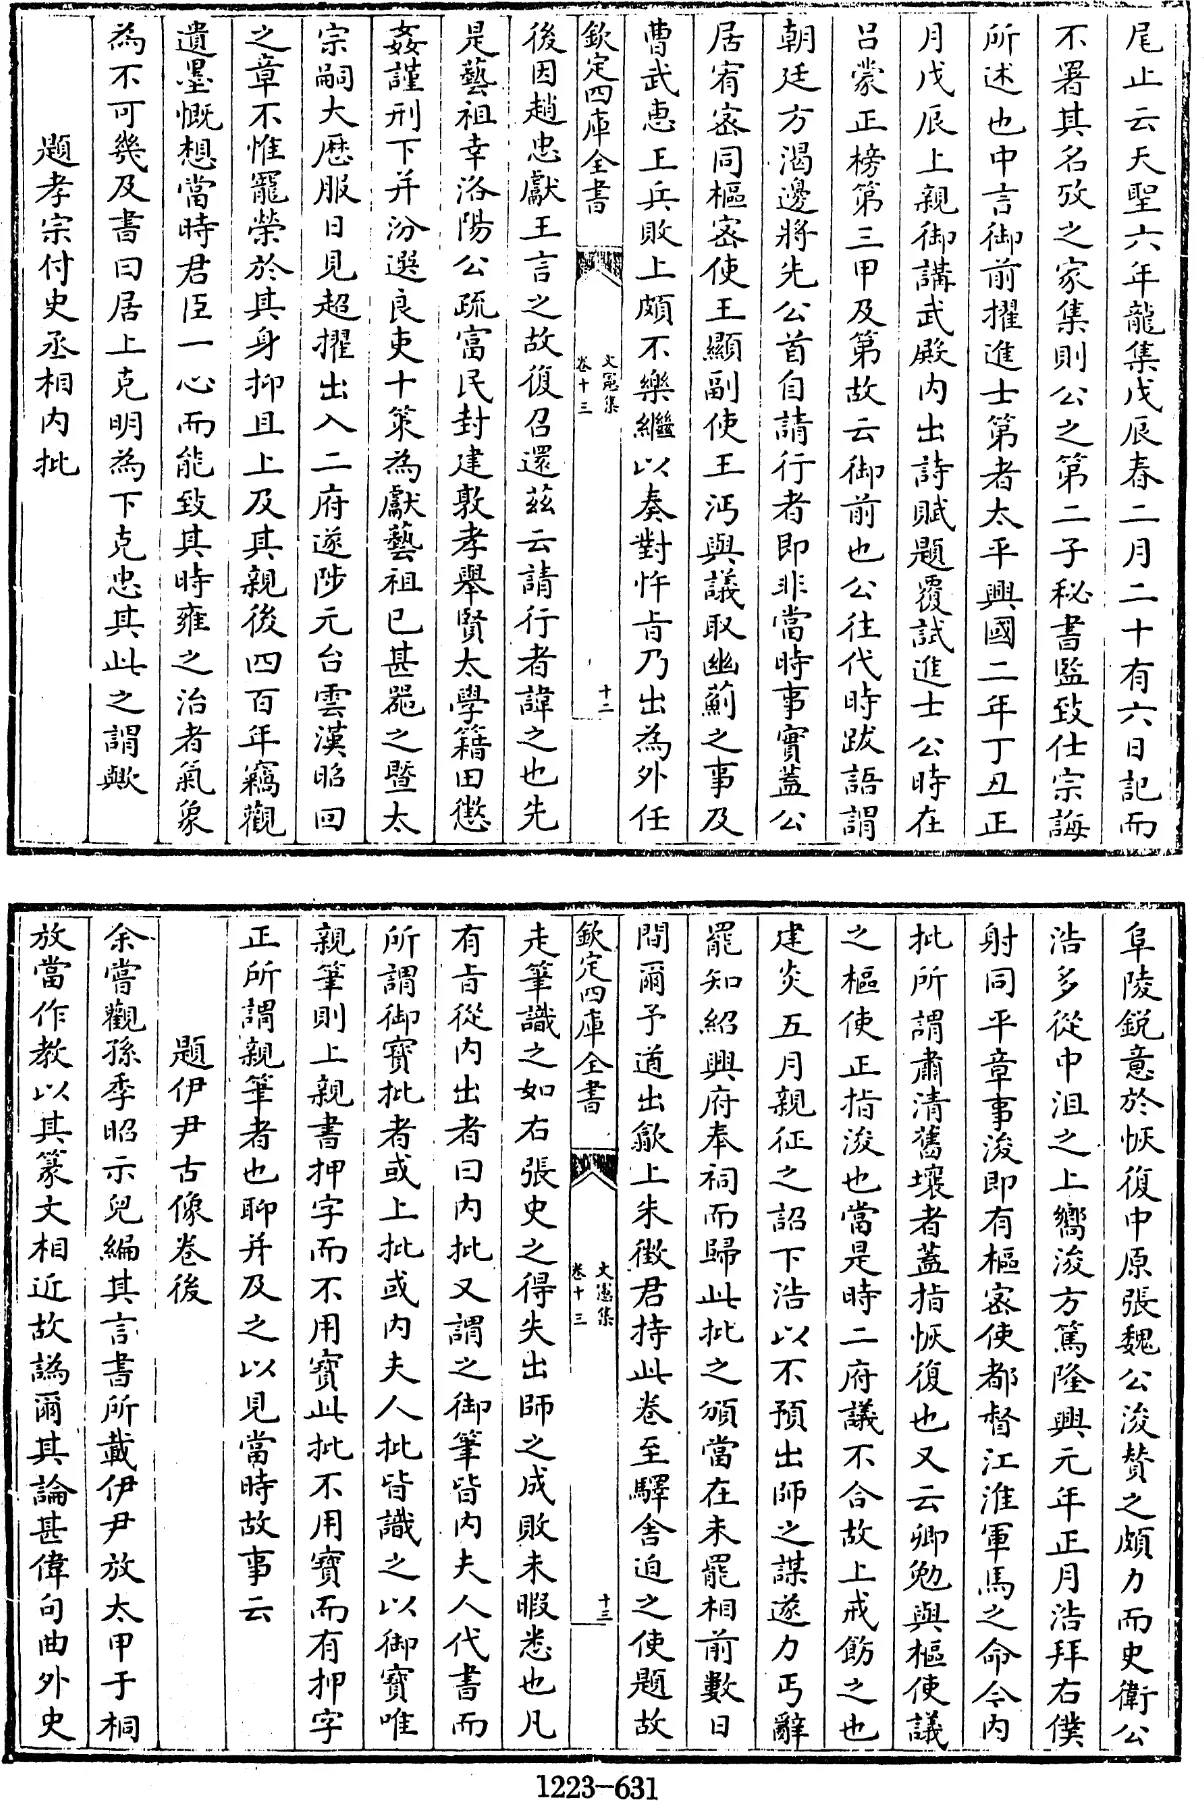 尾止云天聖六年龍集戊辰春二月二十有六日記而
不署其名攷之家集則公之第二子秘書監致仕宗誨
所述也中言御前擢進士第者太平興國二年丁丑正
月戊辰上親御講武殿内出詩賦題覆試進士公時在
吕蒙正榜第三甲及第故云御前也公往代時跋語謂
朝廷方渇邊將先公首自請行者即非當時事實蓋公
居宥宻同樞宻使王顯副使王沔與議取幽薊之事及
曹武惠王兵敗上頗不樂繼以奏對忤㫖乃出為外任
欽定四庫全書
文憲集
卷十三
十二
後因趙忠獻王言之故復召還兹云請行者諱之也先
是藝祖幸洛陽公疏富民封建敦孝舉賢太學籍田懲
姦謹刑下并汾選良吏十策為獻藝祖已甚噐之暨太
宗嗣大厯服日見超擢出入二府遂陟元台雲漢昭回
之章不惟寵榮於其身抑且上及其親後四百年竊觀
遺墨慨想當時君臣一心而能致其時雍之治者氣象
為不可幾及書曰居上克明為下克忠其此之謂歟
題孝宗付史丞相内批
阜陵鋭意於恢復中原張魏公浚賛之頗力而史衛公
浩多從中沮之上嚮浚方篤隆興元年正月浩拜右僕
射同平章事浚即有樞宻使都督江淮軍馬之命今内
批所謂肅清舊壤者蓋指恢復也又云卿勉與樞使議
之樞使正指浚也當是時二府議不合故上戒飭之也
建炎五月親征之詔下浩以不預出師之謀遂力丐辭
罷知紹興府奉祠而歸此批之頒當在未罷相前數日
間爾予道出歙上朱徴君持此卷至驛舍迫之使題故
欽定四庫全書
文憲集
卷十三
十三
走筆識之如右張史之得失出師之成敗未暇悉也凡
有㫖從内出者曰内批又謂之御筆皆内夫人代書而
所謂御寳批者或上批或内夫人批皆識之以御寳唯
親筆則上親書押字而不用寳此批不用寳而有押字
正所謂親筆者也聊并及之以見當時故事云
題伊尹古像卷後
余嘗觀孫季昭示兒編其言書所載伊尹放太甲于桐
放當作教以其篆文相近故譌爾其論甚偉句曲外史
1223-631